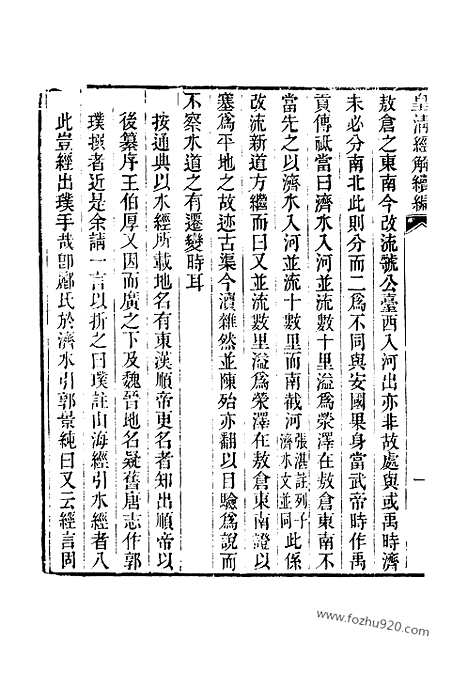 皇清經解續編
一
敖倉之東南今改流虢公臺西入河出亦非故處與或禹時濟
未必分南北此則分而二爲不同與安國果身當武帝時作禹
貢傳祗當曰濟水入河並流數十里溢爲滎澤在敖倉東南不
當先之以濟水入河並流十數里而南截河張湛註列子濟水文並同此係
改流新道方繼而曰又並流數里溢爲滎澤在敖倉東南證以
塞爲平地之故迹古渠今瀆雜然並陳殆亦翻以日驗爲說而
不察水道之有遷變時耳
按通典以水經所載地名有東漢順帝更名者知出順帝以
後纂序王伯厚又因而廣之下及魏晉地名疑舊唐志作郭
璞撰者近是余請一言以折之曰璞註山海經引水經者八
此豈經出璞手哉卽酈氏於濟水引郭景純曰又云經言固
www.fozhu920.com